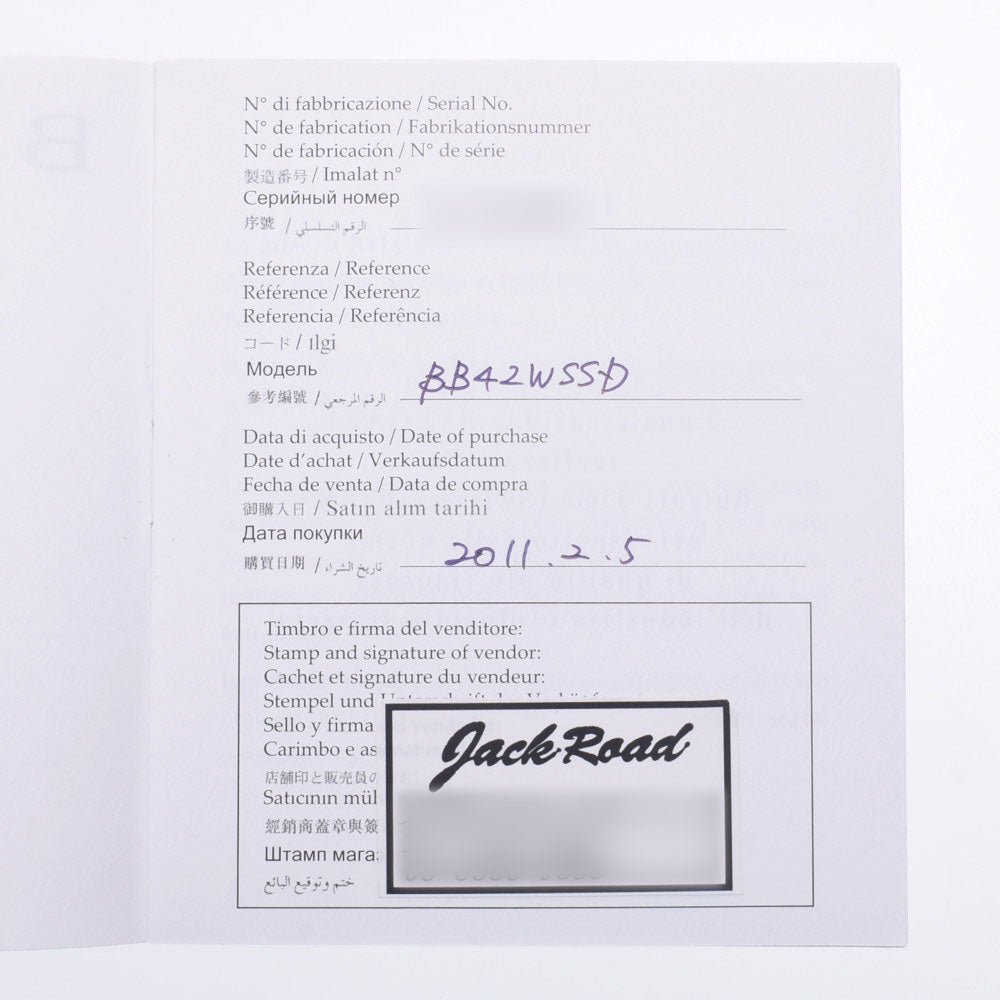 B
N° di fabbricazione / Serial No.
N° de fabrication / Fabrikationsnummer
N° de fabricación / N° de série
製造番号 / Imalat n°
Серийный номер
序號 / الرقم التسلسلي
Referenza / Reference
Référence / Referenz
Referencia / Referência
コード / Ilgi
Модель
參考編號 / الرقم المرجعي BB42WSSD
Data di acquisto / Date of purchase
Date d'achat / Verkaufsdatum
Fecha de venta / Data de compra
御購入日 / Satın alım tarihi
Дата покупки
購買日期 / تاريخ الشراء 2011.2.5
Timbro e firma del venditore:
Stamp and signature of vendor:
Cachet et signature du vendeur:
Stempel und
Sello y firma
Carimbo e as
店舗印と販売員の
Satıcının mü
經銷商蓋章與簽
Штамп мага
ختم وتوقيع البائع
Jack Road